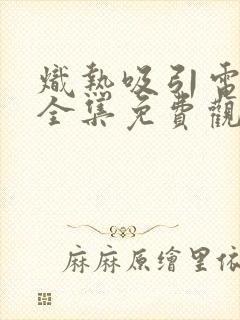 熾熱吸引電
全集免費觀
麻麻原繪里依